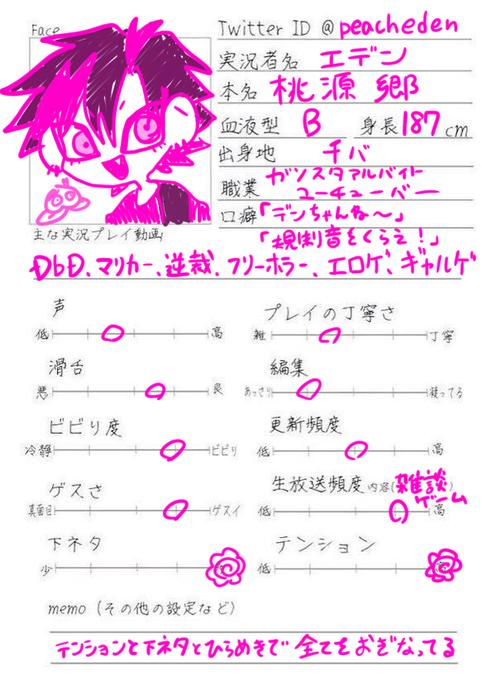 Face
Twitter ID @peacheden
実況者名 エデン
本名 桃源 郷
血液型 B 身長187cm
出身地 千バ
職業 ガソスタアルバイト
ユーチューバー
口癖「デンちゃんな〜」
「規制音をくらえ！」
主な実況プレイ動画
DbD、マリカー、逆裁、フリーホラー、エロゲ、ギャルゲ
声
低 高
プレイの丁寧さ
雑 丁寧
滑舌
悪 良
編集
あっさり 凝ってる
ビビり度
冷静 ビビリ
更新頻度
低 高
ゲスさ
真面目 ゲスイ
生放送頻度 内容(雑談
ゲーム
低 高
下ネタ
少
テンション
低 高
memo (その他の設定など)
テンションと下ネタとひらめきで 全てをおぎなってる